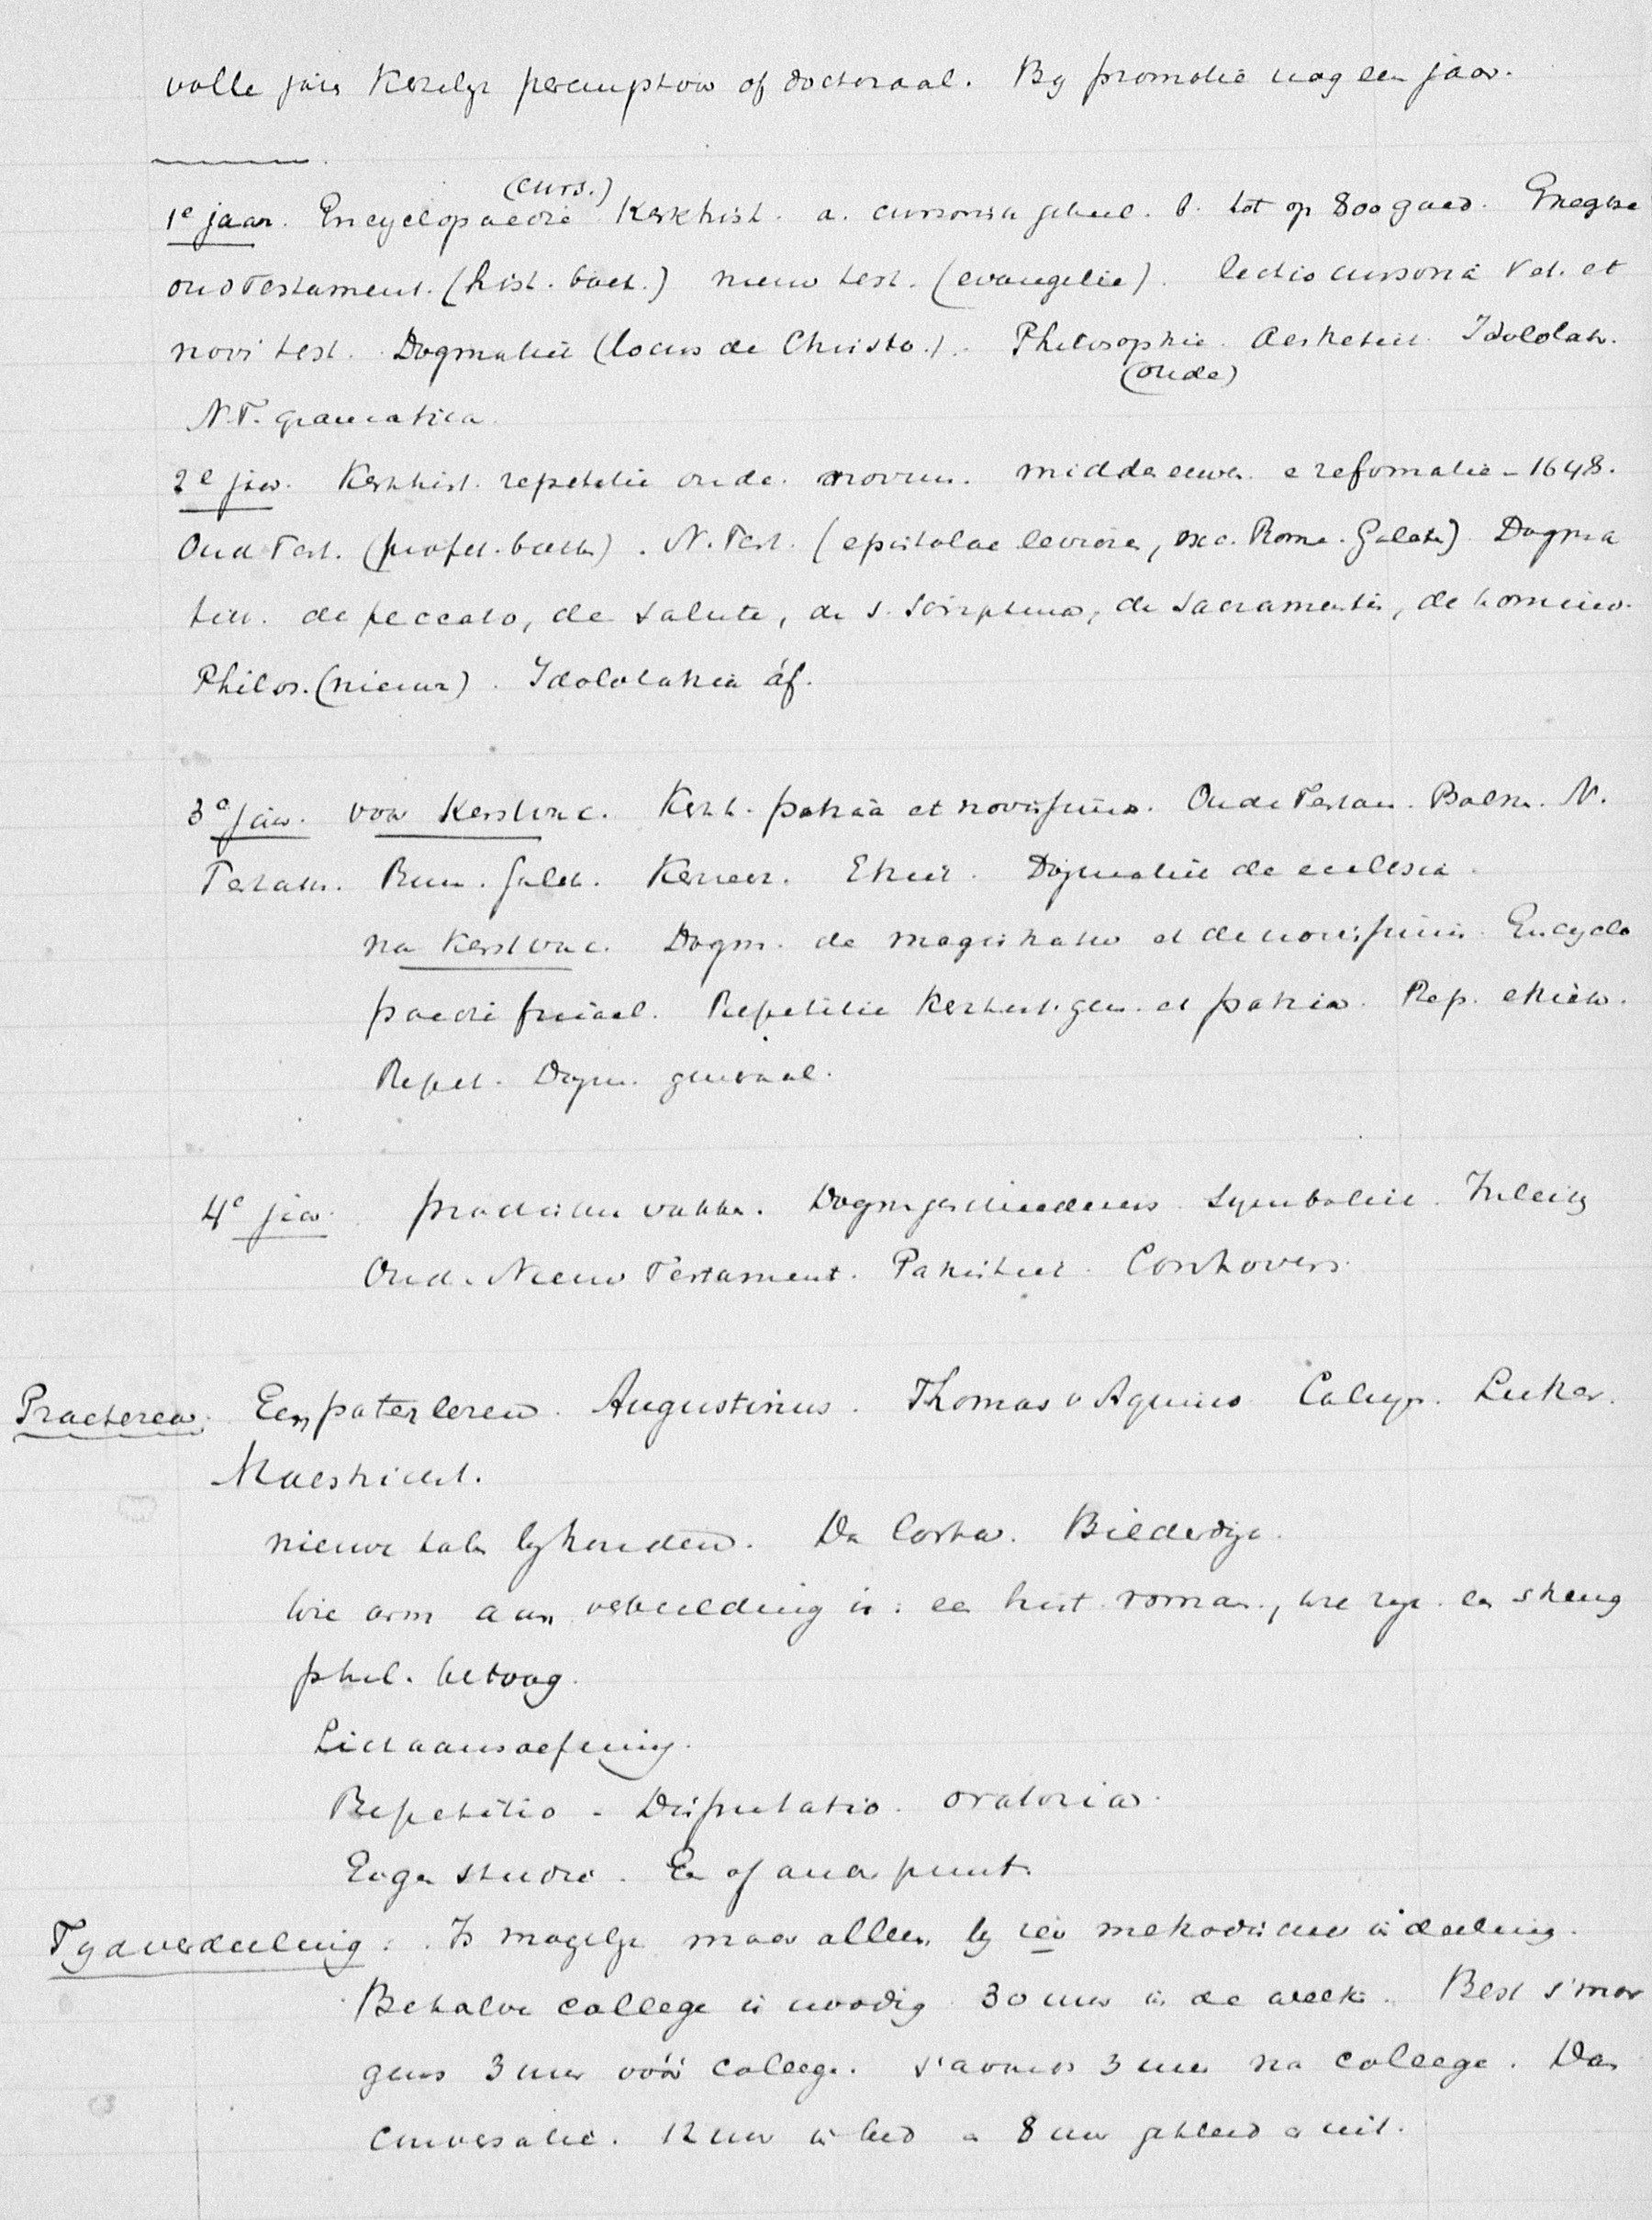 volle jaar Kerkelijk peremptoir of doctoraal. By promotie nog een jaar.
(curs.)
1e jaar. Encyclopaedie Kerkhist. a. cursorisch geheel. b. tot op 800 goed. Exegese
Oud Testament. (hist. boek.) nieuw test. (evangelie). lectio cursoria Vet. et
novi test. Dogmatiek (locus de Christo.). Philosophie. Aesthetiek. Idololatr.
(oude)
N.T. grammatica.
2e jaar. Kerkhist. repetitie oude. novum. middeleeuwen. e reformatie - 1648.
Oud Test. (profet. boeken). N. Test. (epistolae leviores, exc. Rome. Galaten) Dogma
tiek. de peccato, de salute, de s. scriptura, de sacramentis, de homine.
Philos. (nieuwe). Idololatria áf.
3e jaar. voor Kerstvac. Kerkh. patria et novissima. Oude Testam. Psalm. N.
Testam. Rom. Galat. Ethiek. Dogmatiek de ecclesia.
na Kerstvac. Dogm. de magistratu et de novissimis. Encyclo
paedie speciaal. Repetitie Kerkhist. gen. et patria. Rep. ethiek.
Repet. Dogm. generaal.
4e jaar. practische vakken. Dogmgeschiedenis. Symboliek. Inleiding
Oud. Nieuw Testament. Patristiek. Controvers.
Praeterea. Een pater lezen. Augustinus. Thomas v Aquino. Calvyn. Luther.
Maestricht.
nieuwe talen byhouden. Da Costa. Bilderdijk.
wie arm aan verbeelding is: een hist. roman, wie ryk een streng
phil. betoog.
Lichaamsoefening.
Repetitio - Disputatio. oratoria.
Eigen studie. Een of ander punt.
Tydverdeeling: Is mogelijk maar alleen by een methodische indeeling.
Behalve college is noodig 30 uur in de week. Best s'mor
gens 3 uur vóór college. s'avonds 3 uur na college. Dan
conversatie. 12 uur in bed en 8 uur gekleed er uit.